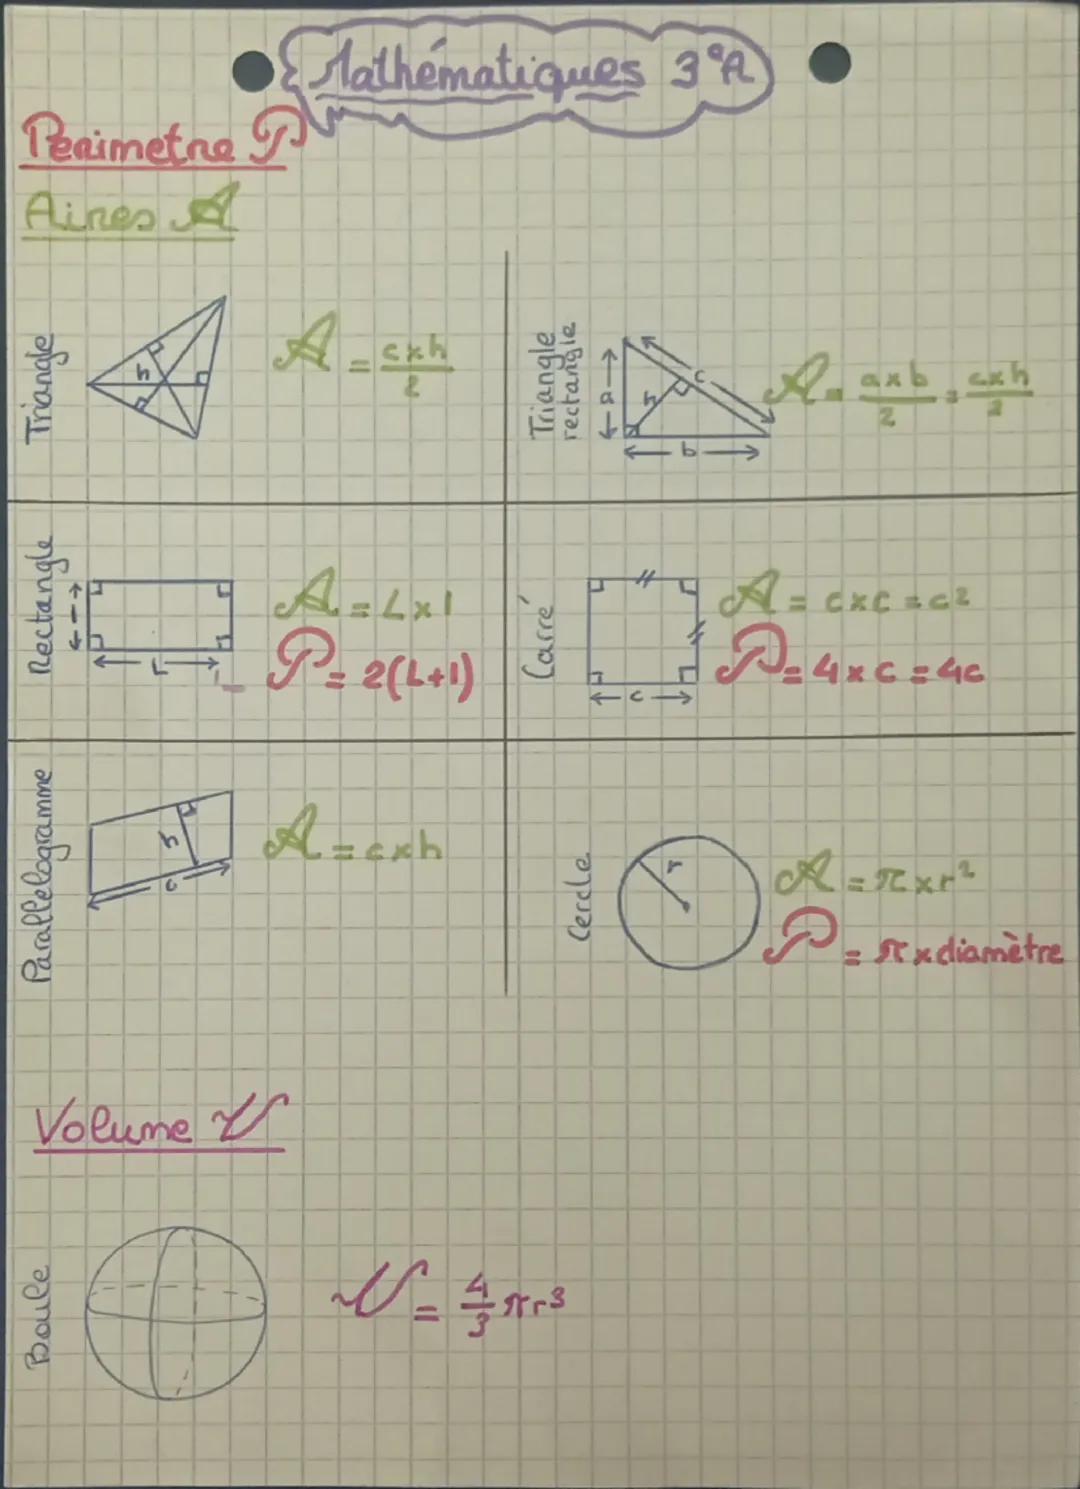 Mathématiques 3°A
Perimetre P
Aires A
Triangle
h
A = c×h/2
Triangle rectangle
a
h
c
b
A = a×b/2 = c×h/2
Rectangle
l
L
A = L×l
P = 2(L+l)
Carré
c
A = c×c = c²
P = 4×c = 4c
Parallelogramme
h
c
A = c×h
Cercle
r
A = π×r²
P = π×diamètre
Volume V
Boule
V = 4/3 πr³